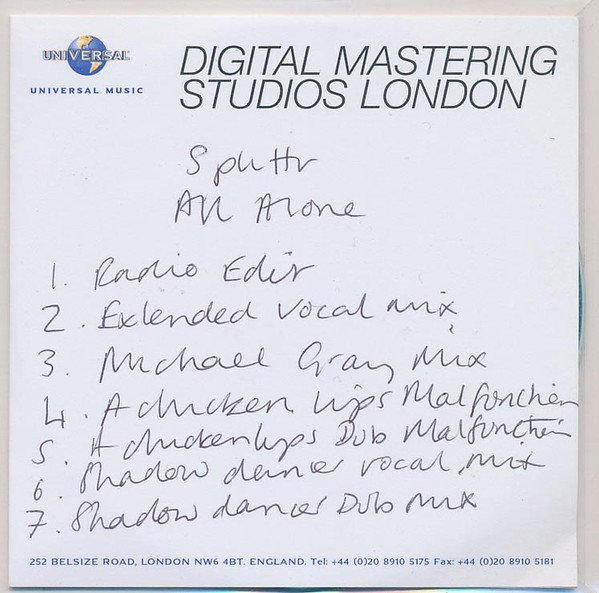 UNIVERSAL
UNIVERSAL MUSIC
DIGITAL MASTERING
STUDIOS LONDON
Splittr
All Alone
1. Radio Edit
2. Extended vocal mix
3. Michael Gray Mix
4. A chicken lips Malfunction
5. A chicken lips Dub Malfunction
6. Shadow dancer vocal mix
7. Shadow dancer Dub mix
252 BELSIZE ROAD, LONDON NW6 4BT. ENGLAND. Tel: +44 (0)20 8910 5175 Fax: +44 (0)20 8910 5181